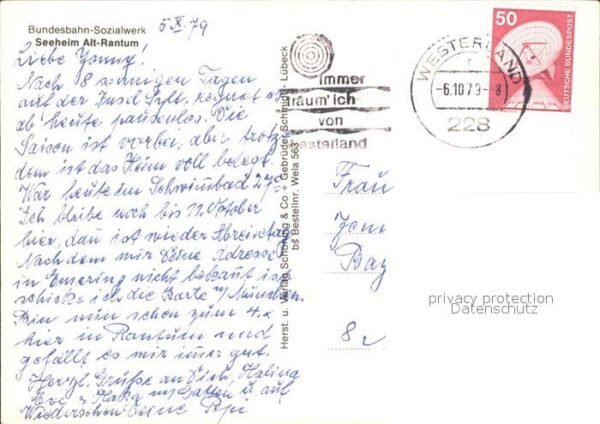 Bundesbahn-Sozialwerk
Seeheim Alt-Rantum
5 X 79
Liebe Jenny!
Nach 18 sonnigen Tagen
auf der Insel Sylt, regnet es
ab heute pausenlos. Die
Saison ist vorbei, aber trotz
dem ist das Heim voll belegt.
War heute im Schwimbad 27°
Ich bleibe noch bis 19. Oktober
hier, dan ist wieder Abreisetag
Nachdem mir Deine Adresse
in Emering nicht bekant ist
schicke ich die Karte n/München.
Bin nun schon zum 4.x
hier in Rantum und
gefällt es mir immer gut.
Herzl. Grüße an Dich, Halina
Eve u. auf
Wiedersehen Deine
Herst. u. Verlag Schöning & Co + Gebrüder Schmidt, Lübeck
bs Bestellnr. Wela 563
immer
träum' ich
von
Westerland
WESTERLAND
-6.10.79-8
228
50
DEUTSCHE BUNDESPOST
Frau
Jenn
Bay
8
privacy protection
Datenschutz